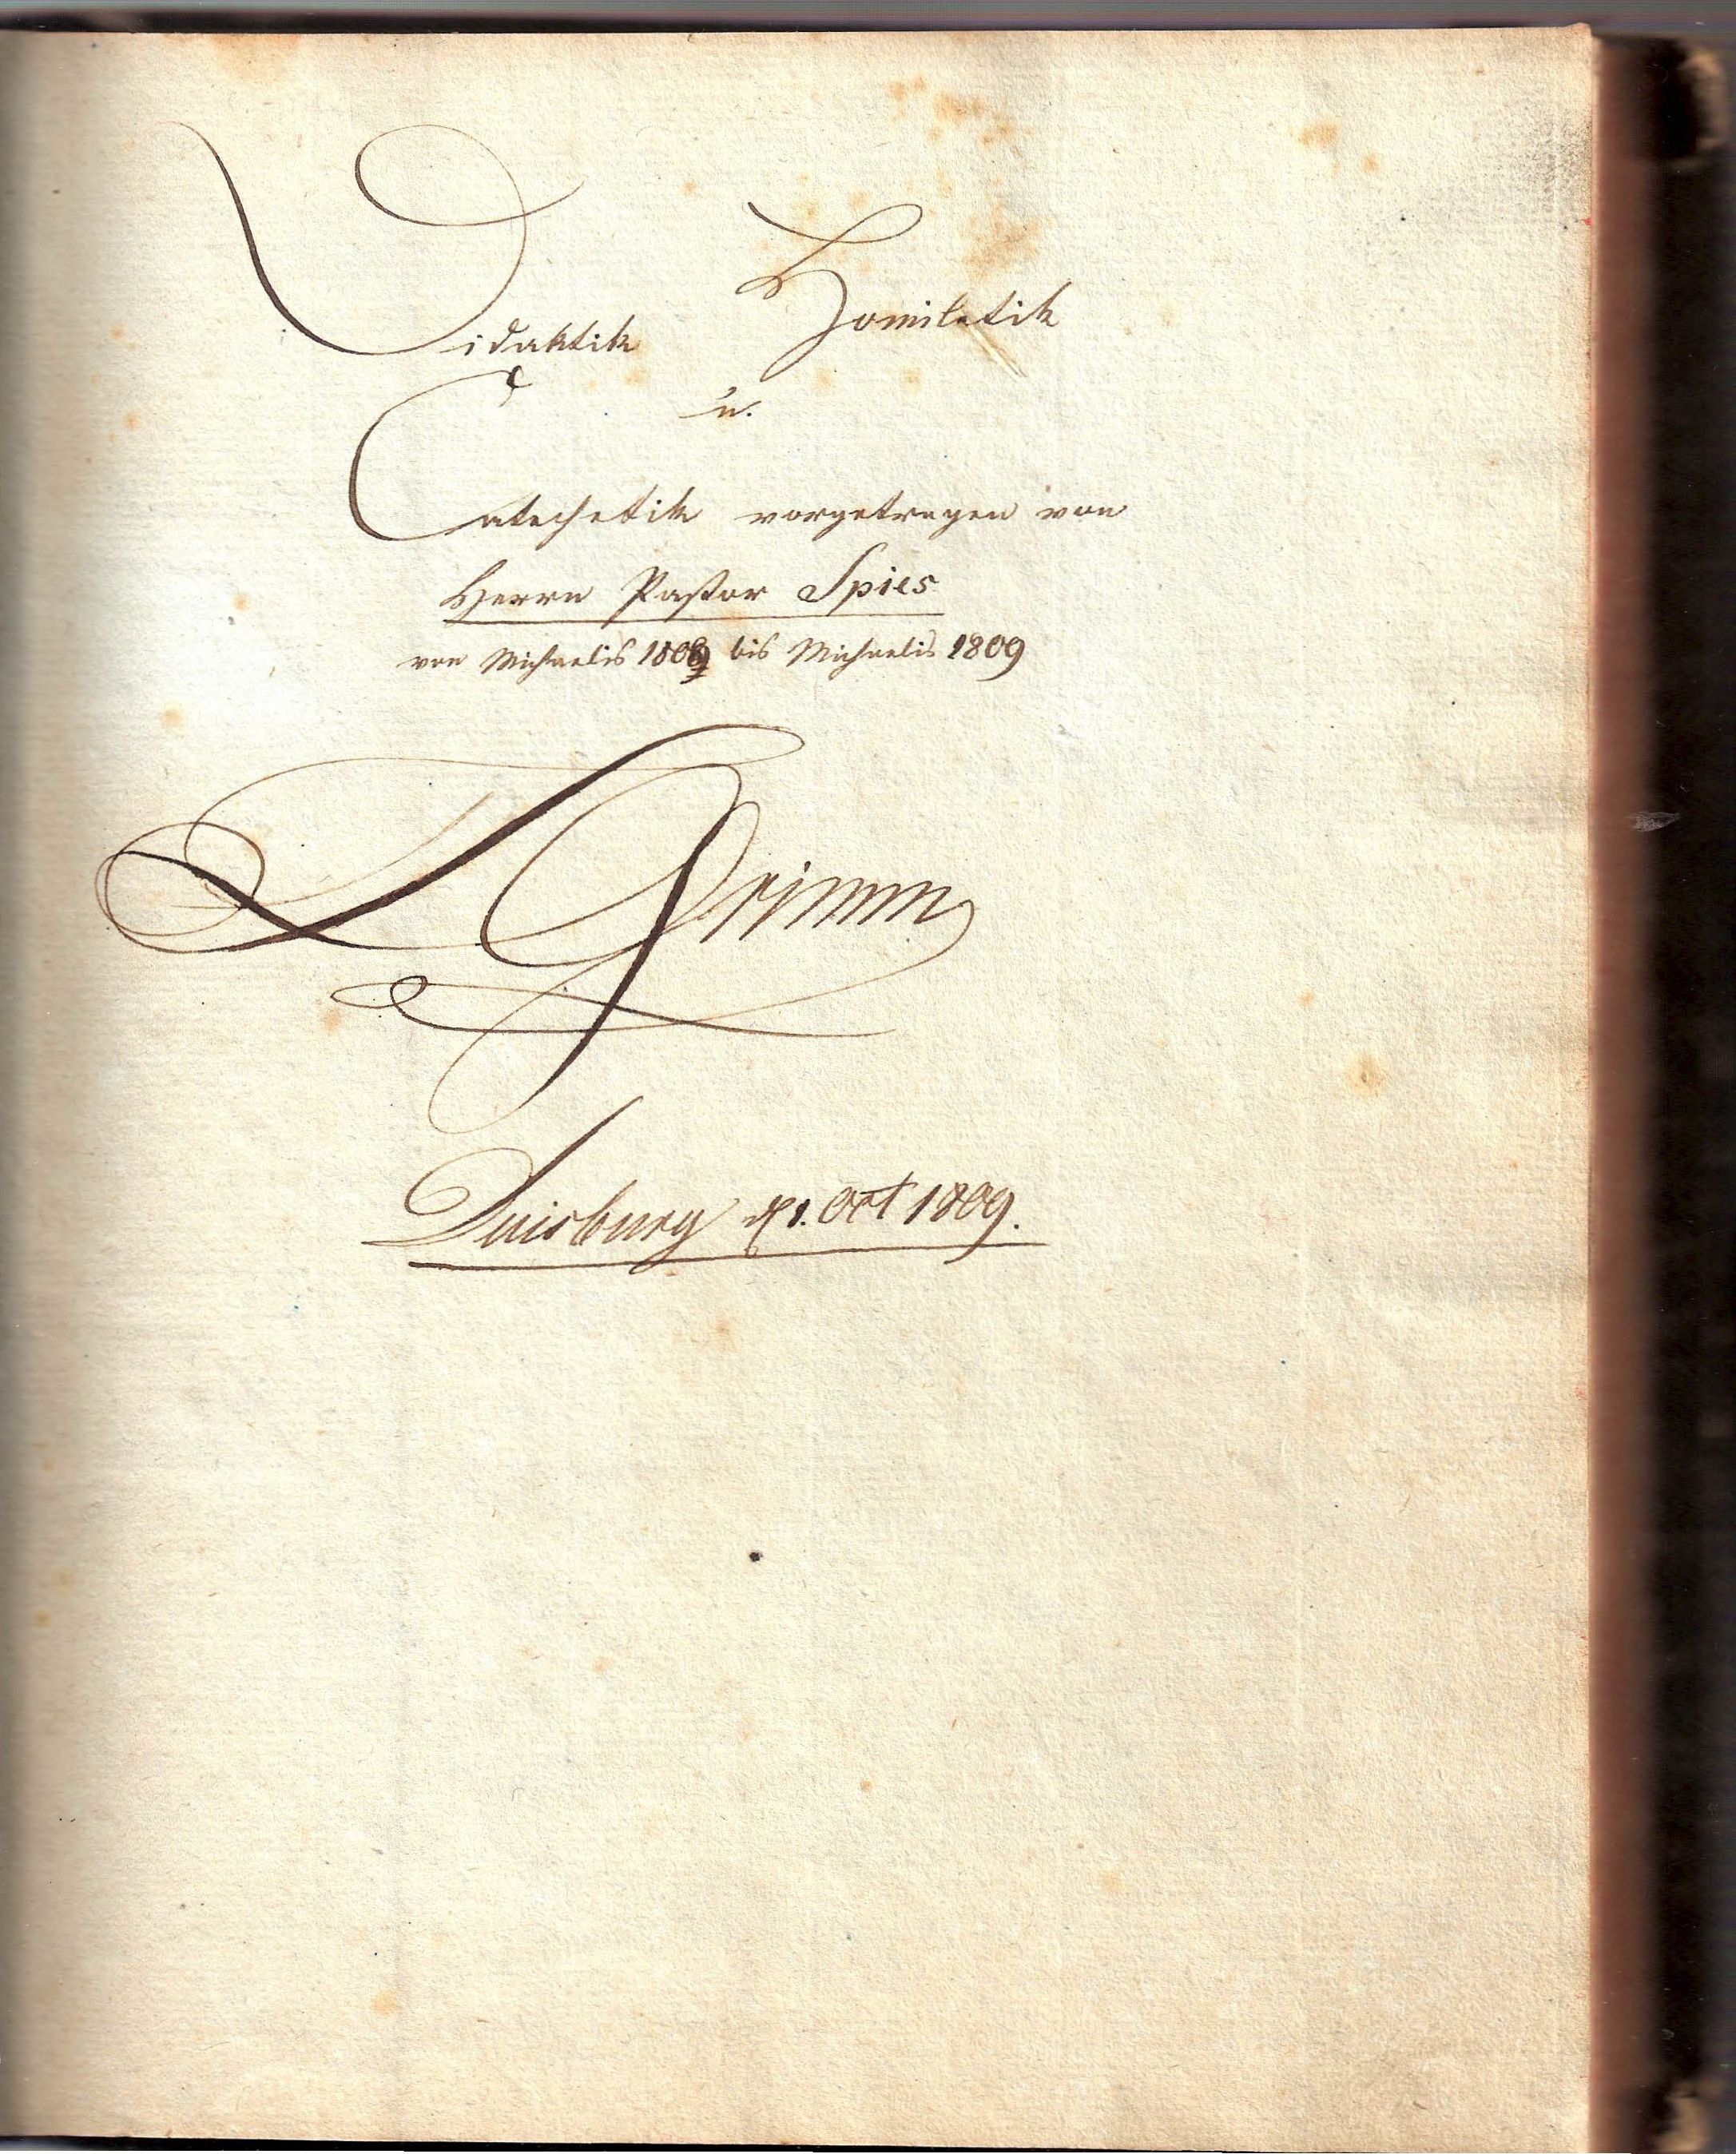 Didaktik Homiletik
u.
Catechetik vorgetragen von
Herrn Pastor Spies
von Michaelis 1808 bis Michaelis 1809
L Grimm
Duisburg 1. Oct 1809.